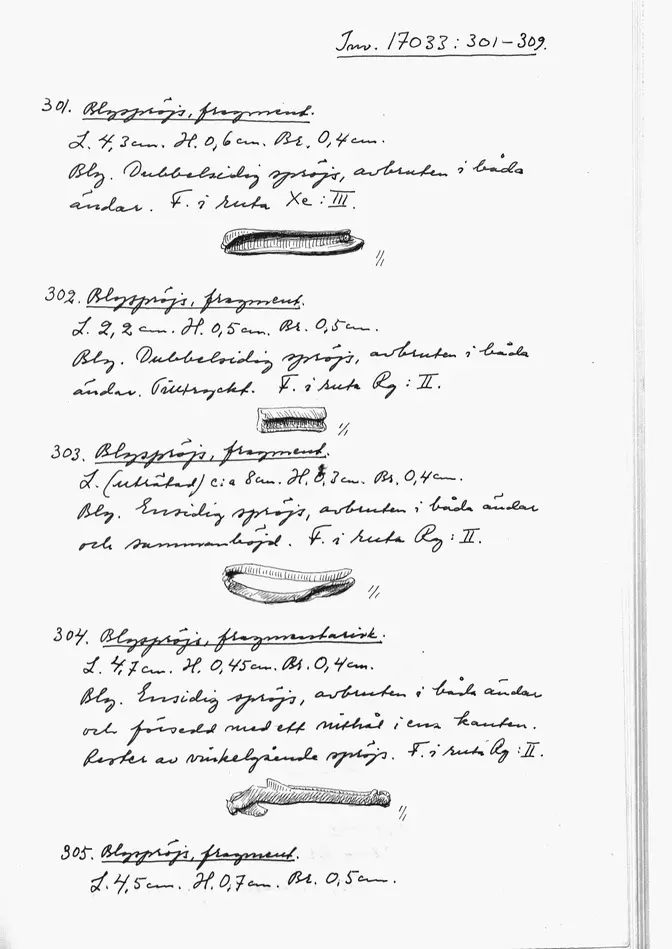 Inv. 17033:301-309.
301. Blyspröjs, fragment.
L. 4,3 cm. H. 0,6 cm. Br. 0,4 cm.
Bly. Dubbelsidig spröjs, avbruten i båda
ändar. F. i ruta Xe : III.
1/1
302. Blyspröjs, fragment.
L. 2,2 cm. H. 0,5 cm. Br. 0,5 cm.
Bly. Dubbelsidig spröjs, avbruten i båda
ändar. Tilltryckt. F. i ruta Rg : II.
1/1
303. Blyspröjs, fragment.
L. (uträtad) c:a 8 cm. H. 0,3 cm. Br. 0,4 cm.
Bly. Ensidig spröjs, avbruten i båda ändar
och sammanböjd. F. i ruta Rg : II.
1/1
304. Blyspröjs, fragmentarisk.
L. 4,7 cm. H. 0,45 cm. Br. 0,4 cm.
Bly. Ensidig spröjs, avbruten i båda ändar
och försedd med ett nithål i ena kanten.
Rester av vinkelgående spröjs. F. i ruta Rg : II.
1/1
305. Blyspröjs, fragment.
L. 4,5 cm. H. 0,7 cm. Br. 0,5 cm.